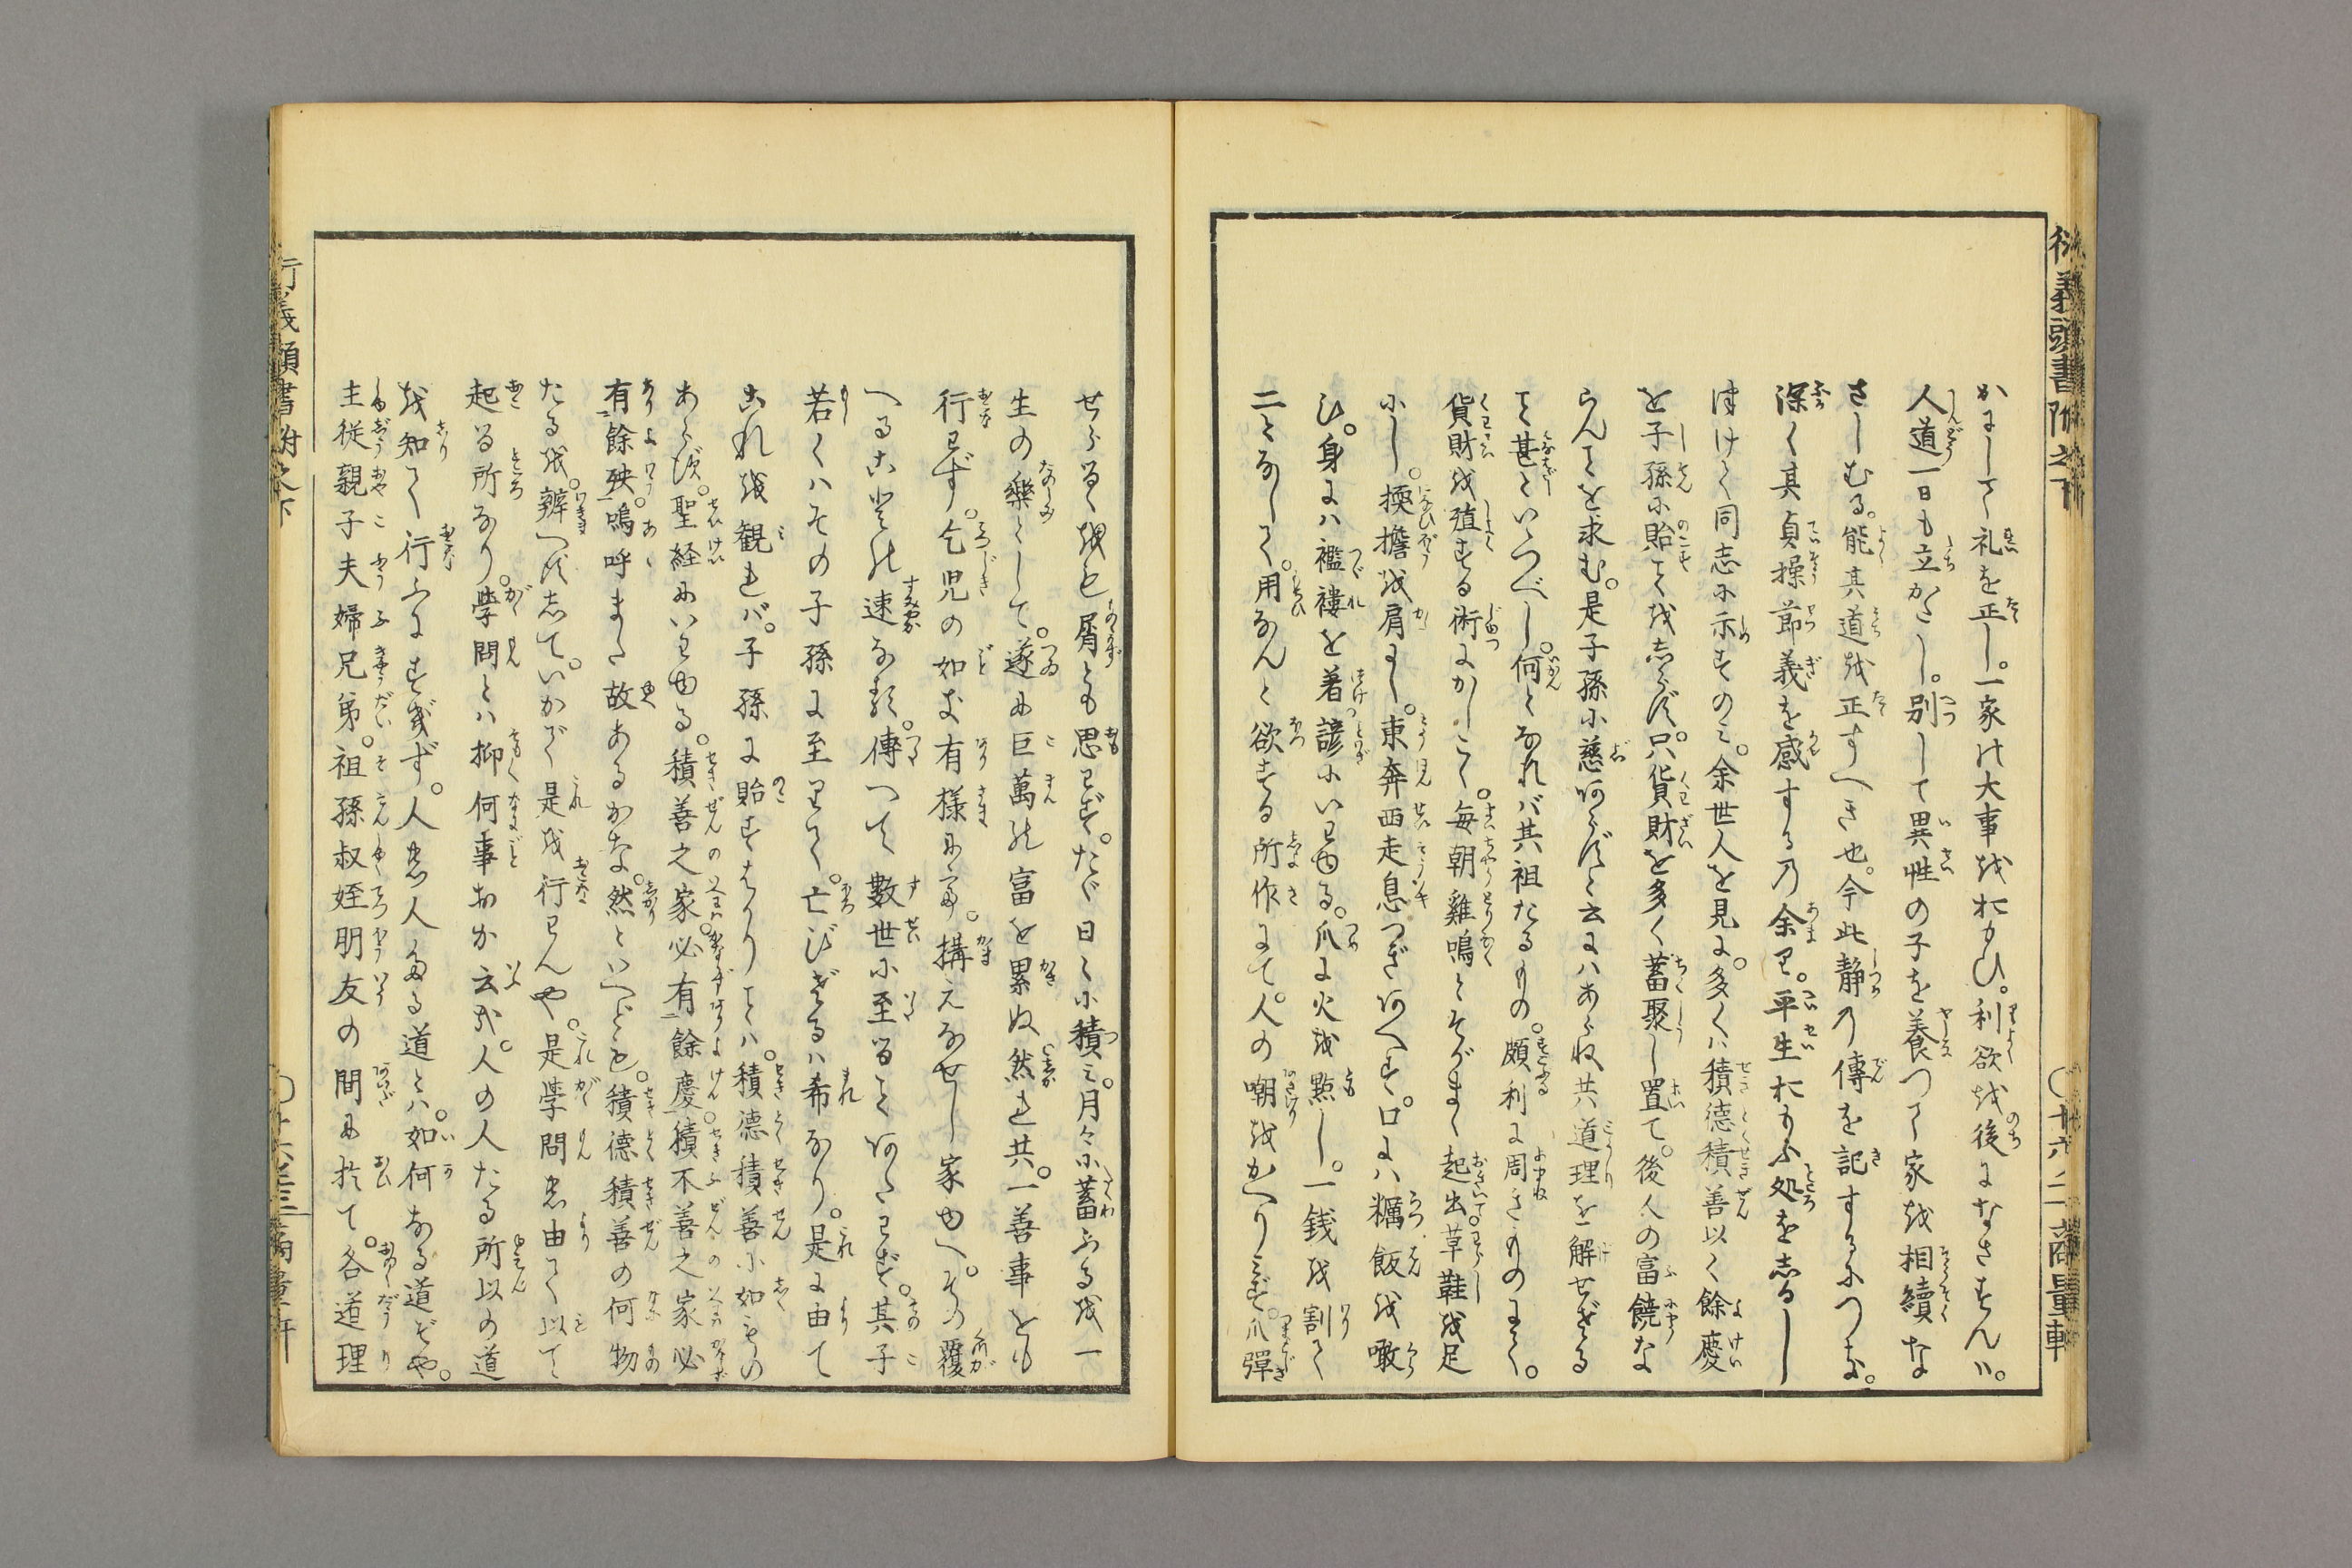 衍義頭書附之下
かにして礼を正し。一家の大事をおもひ。利欲を後になさずんハ。
人道一日も立がたし。別して異姓の子を養つて家を相續な
さしむる。能其道を正すべき也。今此静の傳を記するにつき。
深く其貞操節義を感するの余り。平生おもふ処をしるし
つけて同志に示すのミ。余世人を見に。多くハ積徳積善以て餘慶
を子孫に貽ことをしらず。只貨財を多く蓄聚し置て。後人の富饒な
らんことを求む。是子孫に慈あらずと云にハあらね共道理を解せざる
こと甚といつべし。何となれバ其祖たるもの。頗利に周きものにて。
貨財を殖する術にかしこく。毎朝雞鳴とそがまく起出。草鞋を足
にし。擔を肩にし。東奔西走息つぎあへず。口にハ糲飯を噉
ひ。身にハ襤褸を着諺にいはゆる。爪に火を點し。一銭を割て
二となして。用なんと欲する所作にて。人の嘲をかへりミず。爪彈
○廿六ノ二 商量軒
せらるゝをも屑とも思ハず。たゞ日々に積ミ。月々に蓄ふるを一
生の樂として。遂に巨萬の富を累ぬ然れ共。一善事をも
行ハず。乞児の如き有様にて。搆えなせし家也。その覆
へることの速なる。傳つて數世に至ることあたハず。其子
若くハその子孫に至りて。亡びざるハ希なり。是に由て
これを観れバ。子孫に貽すはかりことハ。積德積善に如もの
あらず。聖経にいはゆる。積善之家必有餘慶積不善之家必
有餘殃。嗚呼また故あるかな。然といへども。積德積善の何物
たるを。辨へずして。いかで是を行ハんや。是學問に由て以て
起る所なり。學問とハ抑何事をか云ぞ。人の人たる所以の道
を知て行ふにすぎず。人の人たる道とハ。如何なる道ぞや。
主従親子夫婦兄弟。祖孫叔姪朋友の間に於て。各道理
衍義頭書附之下
商量軒